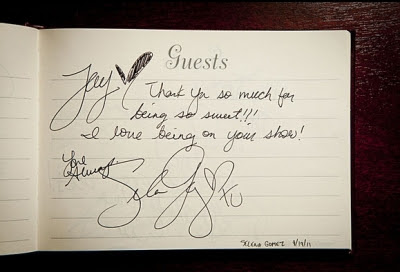 Guests
Jay,
Thank you so much for
being so sweet!!!
I love being on your show!
Love
Always
SELENA GOMEZ